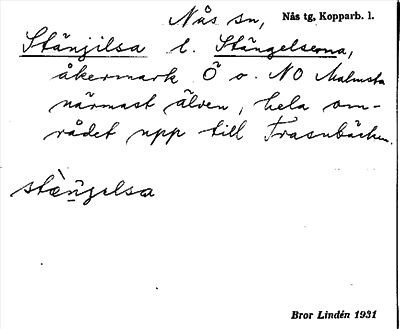 Nås sn, Nås tg, Kopparb. l.
Stänjilsa l. Stängelserna,
åkermark Ö o. NO Malmsta
närmast älven, hela om-
rådet upp till Trasnbäcken.
stæ̀n̲gelsa
Bror Lindén 1931